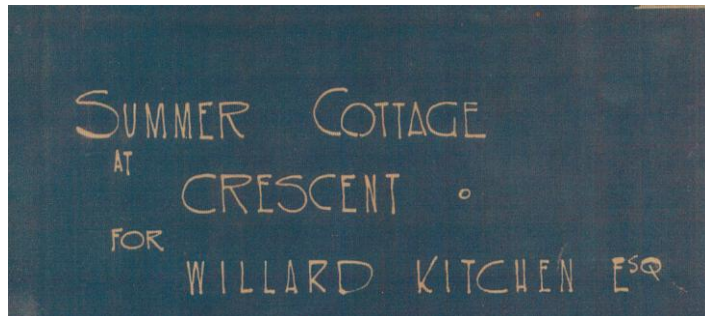 SUMMER COTTAGE
AT
CRESCENT
FOR
WILLARD KITCHEN ESQ